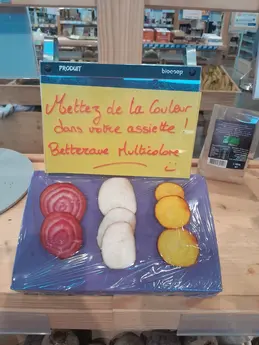 PRODUIT biocoop
Mettez de la Couleur
dans votre assiette !
Betterave Multicolore